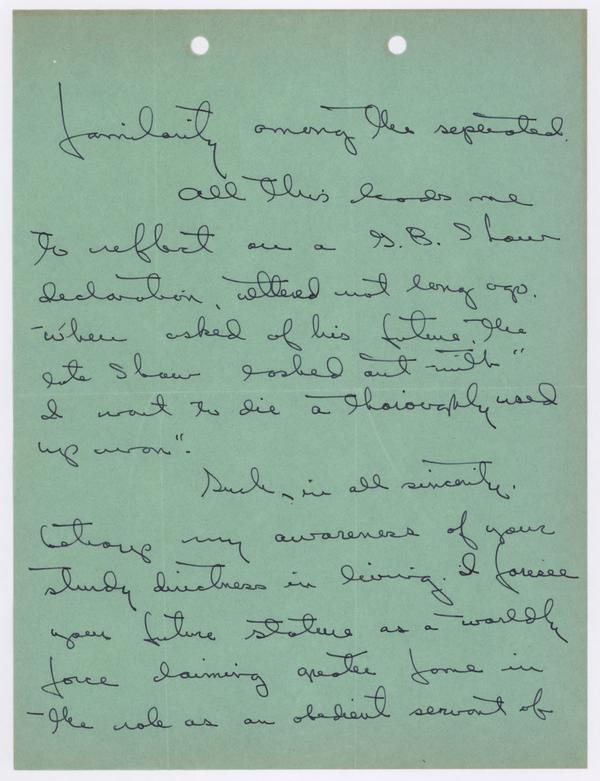 familiarity among the seperated.
All this leads me
to reflect on a G.B. Shaw
declaration, uttered not long ago.
When asked of his future, the
late Shaw lashed out with "
I want to die a thoroughly used
up man".
Such, in all sincerity,
betrays my awareness of your
sturdy directness in living. I foresee
your future stature as a worldly
force claiming greater fame in
the role as an obedient servant of